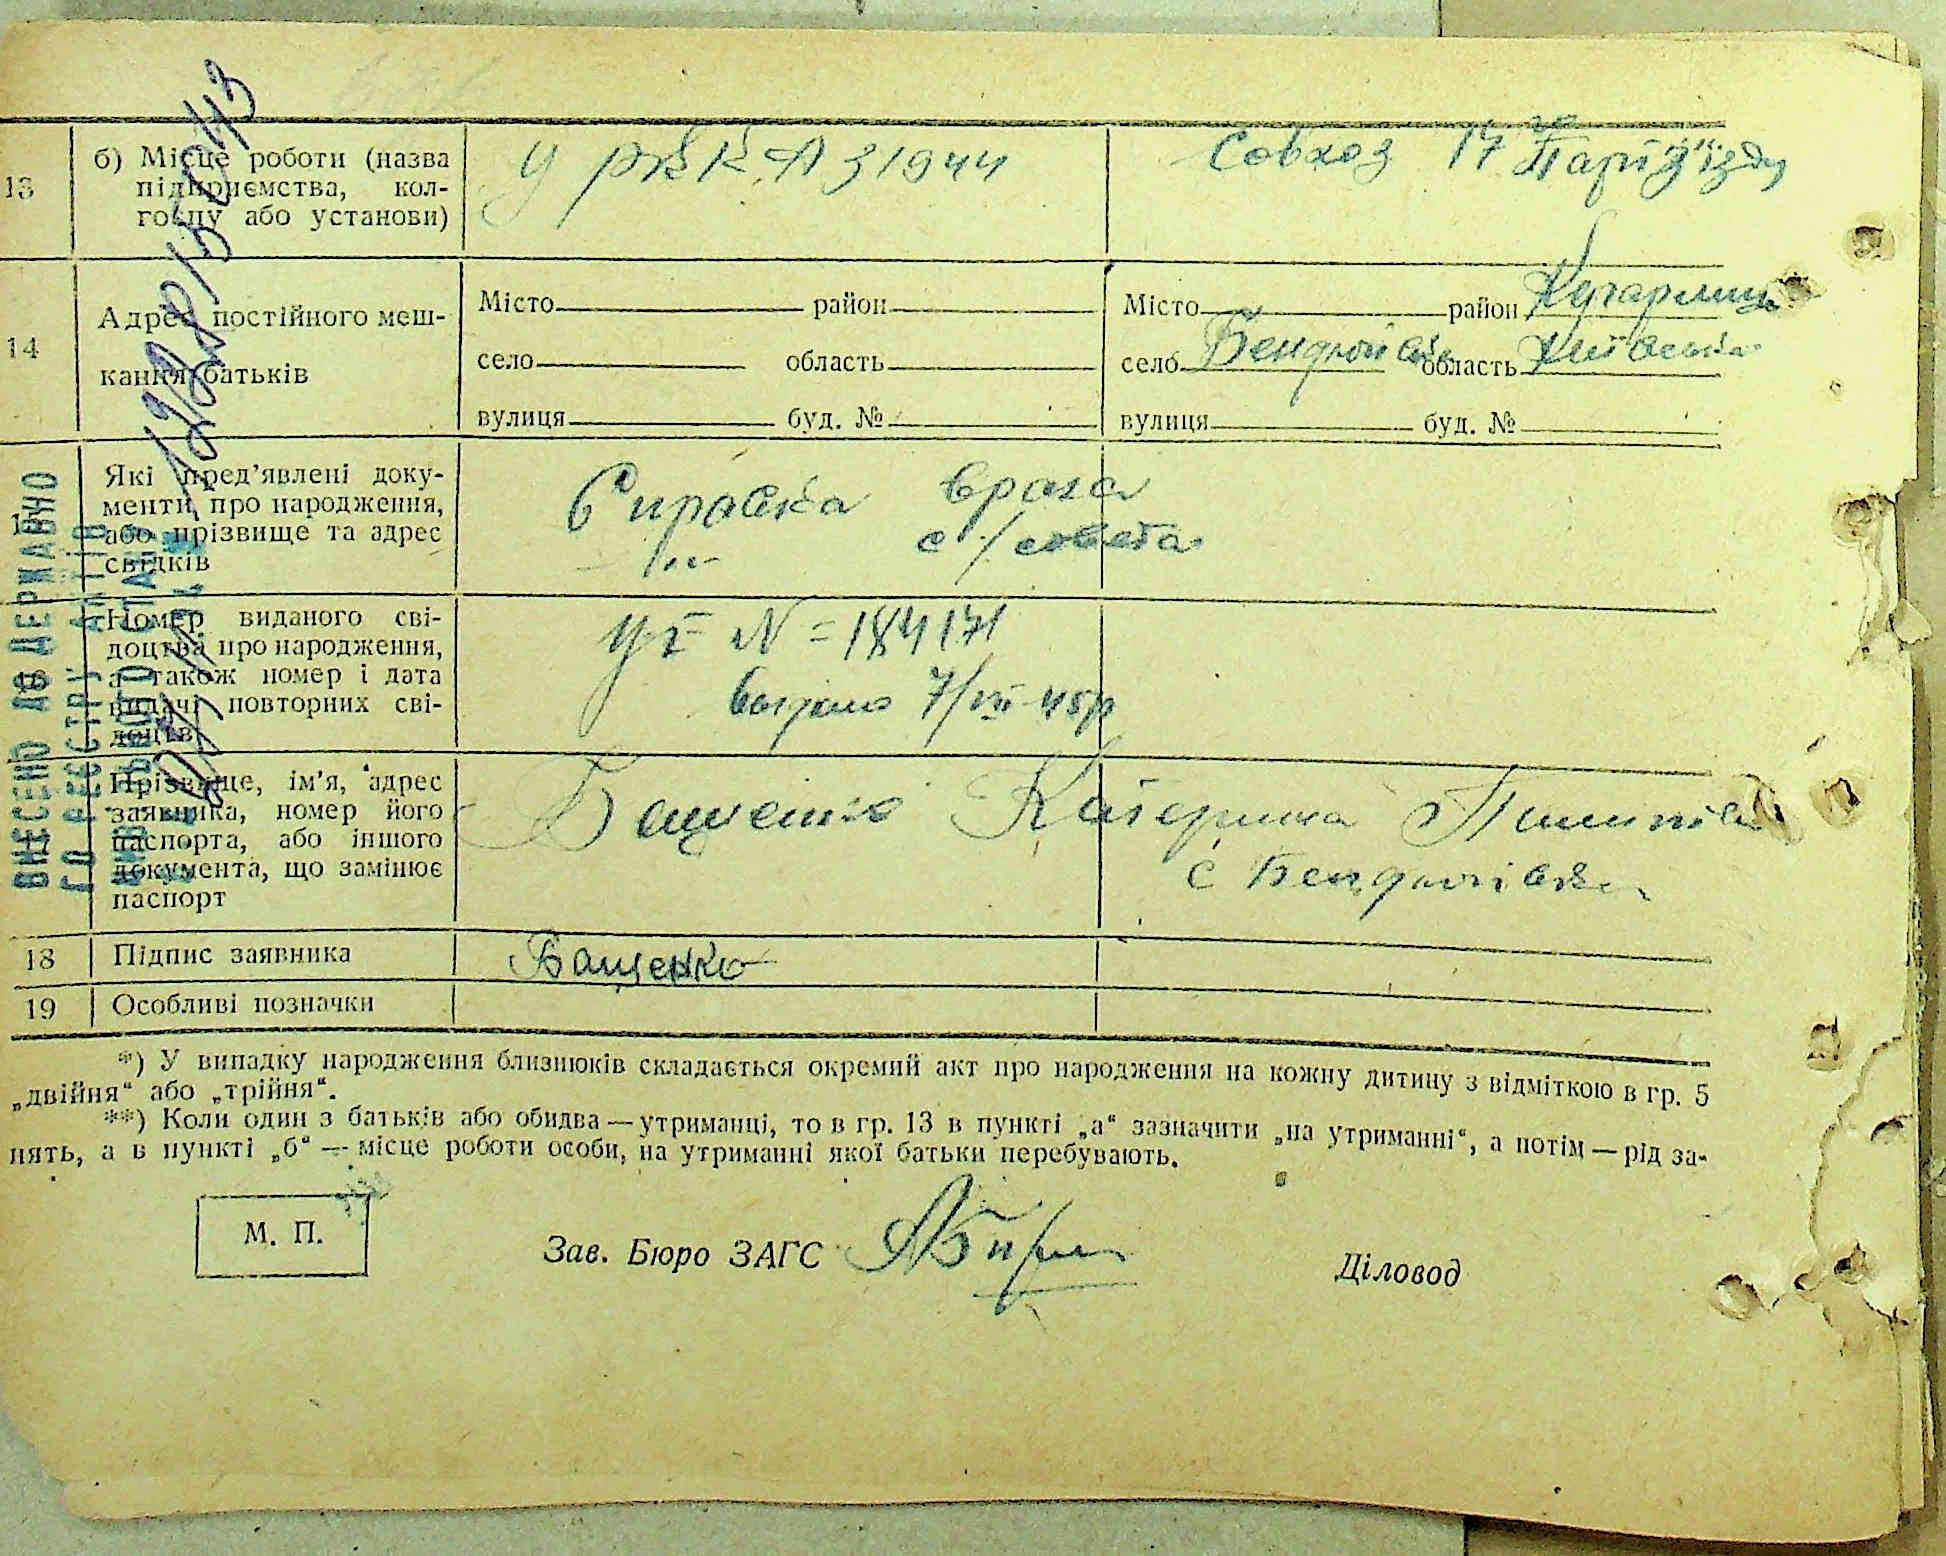 13
б) Місце роботи (назва
підприємства, кол-
госпу або установи)
у РККА з 1944
Совхоз 17 го Партз'їзду
14
Адрес постійного меш-
кання батьків
Місто район
село область
вулиця буд. №
Місто район Кагарлиць
село Бендюгівка область Київська
вулиця буд. №
Які пред'явлені доку-
менти про народження,
або прізвище та адрес
свідків
Справка врача
с/совета
16
Номер виданого сві-
доцтва про народження,
а також номер і дата
видачі повторних сві-
доцтв
N = 184171
7/VII-45р
Прізвище, ім'я, адрес
заявника, номер його
паспорта, або іншого
документа, що замінює
паспорт
Бащенко Катерина Пилипівна
с Бендюгівка
18
Підпис заявника
Бащенко
19
Особливі позначки
ВНЕСЕНО ДО ДЕРЖАВНОГО РЕЄСТРУ АКТІВ
*) У випадку народження близнюків складається окремий акт про народження на кожну дитину з відміткою в гр. 5
„двійня“ або „трійня“.
**) Коли один з батьків або обидва — утриманці, то в гр. 13 в пункті „а“ зазначити „на утриманні“, а потім — рід за-
нять, а в пункті „б“ — місце роботи особи, на утриманні якої батьки перебувають.
М. П.
Зав. Бюро ЗАГС
Діловод